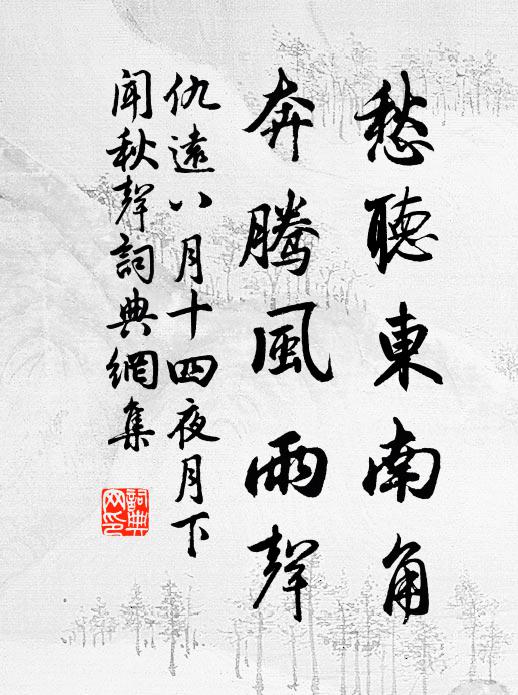 愁聽東南角
奔騰風雨聲
仇遠八月十四夜月下
聞秋聲詞典網集
詞典
网印